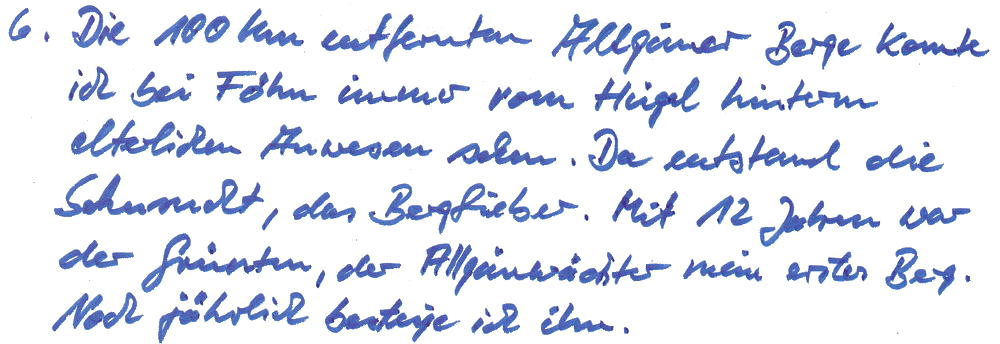 6. Die 100 km entfernten Allgäuer Berge konnte
ich bei Föhn immer vom Hügel hinterm
elterlichen Anwesen sehen. Da entstand die
Sehnsucht, das Bergfieber. Mit 12 Jahren war
der Grünten, der Allgäuwächter mein erster Berg.
Noch jährlich besteige ich ihn.